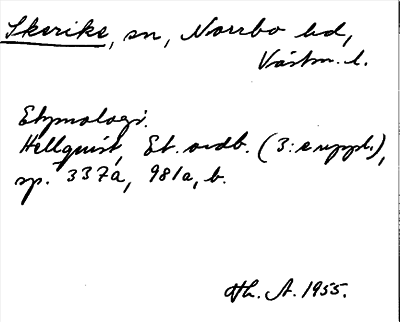 Skerike, sn, Norrbo hd,
Västm. l.
Etymologi.
Hellquist, Et. ordb. (3:e uppl.),
sp. 337a, 981a, b.
Hh. A. 1955.